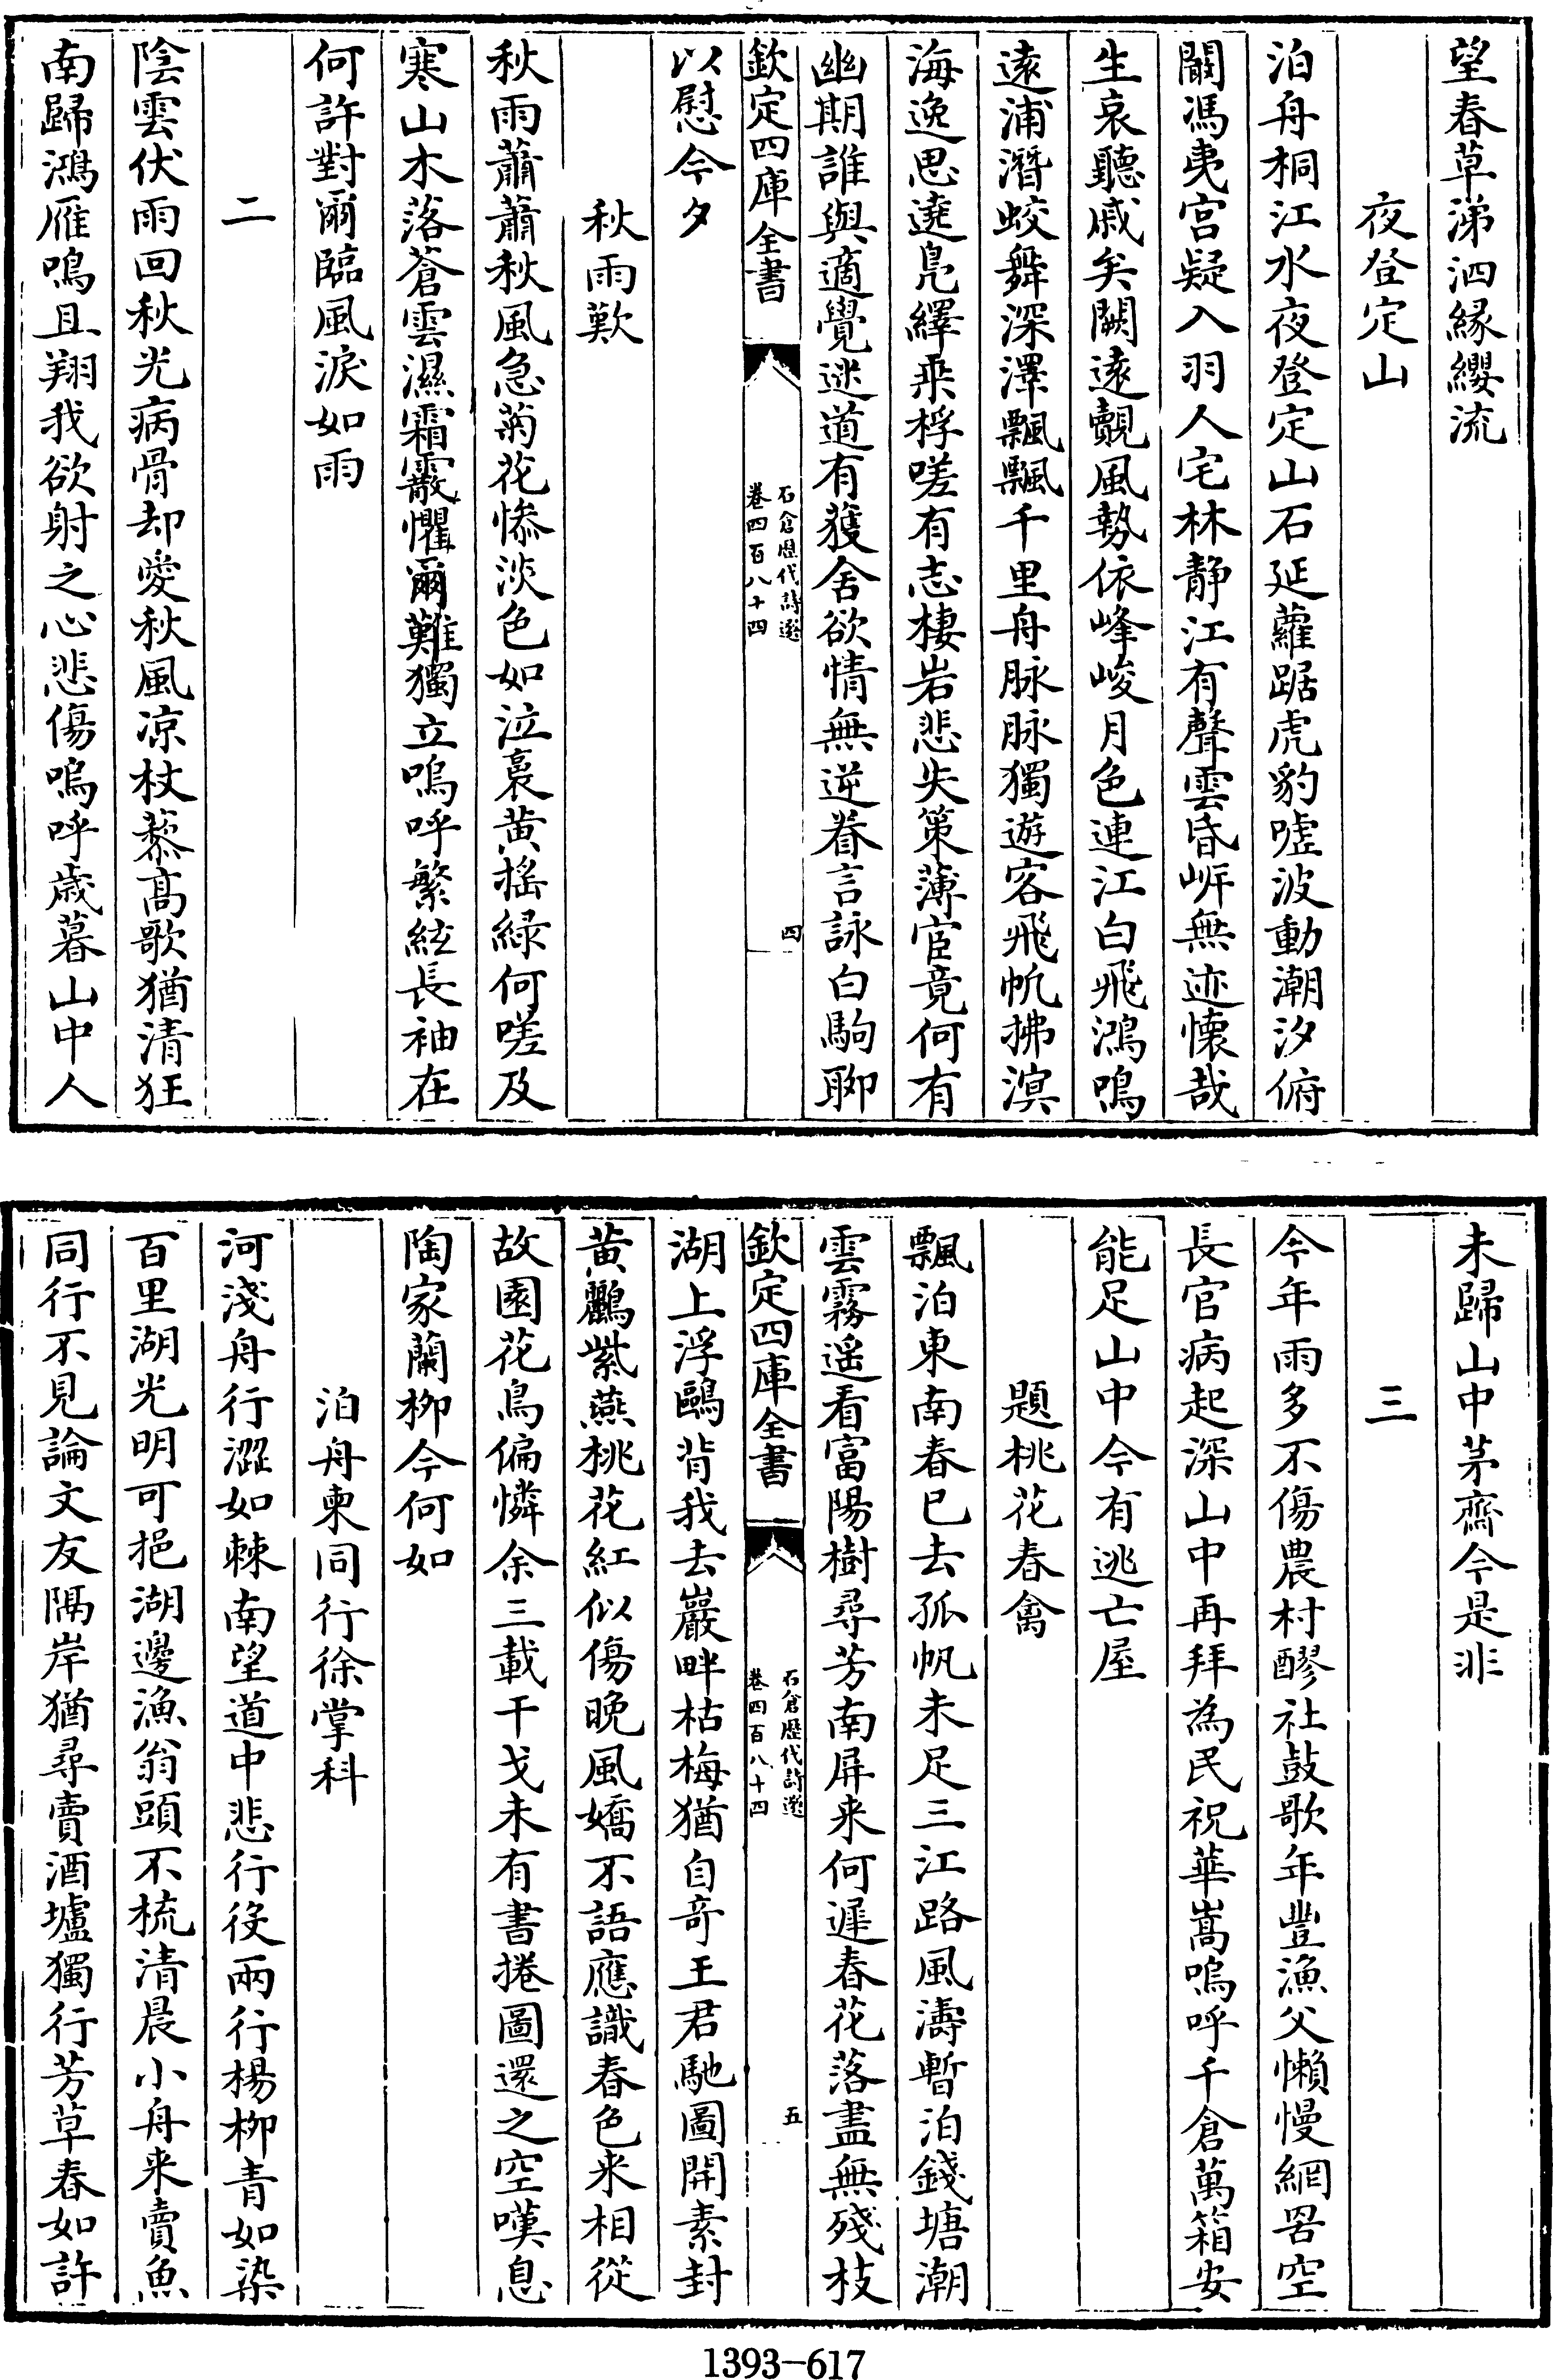 望春草涕泗緣纓流
夜登定山
泊舟桐江水夜登定山石延蘿踞虎豹嘘波動潮汐俯
闞馮夷宫疑入羽人宅林静江有聲雲昏㟁無迹懐哉
生哀聽戚矣闕遠覿風勢依峰峻月色連江白飛鴻鳴
遠浦潛蛟舞深澤飄飄千里舟脉脉獨遊客飛帆拂溟
海逸思遶鳬繹乗桴嗟有志棲岩悲失策薄宦竟何有
幽期誰與適覺迷道有獲舍欲情無逆眷言詠白駒聊
欽定四庫全書
石倉歴代詩選
卷四百八十四
四
以慰今夕
秋雨歎
秋雨蕭蕭秋風急菊花慘淡色如泣裛黄揺緑何嗟及
寒山木落蒼雲濕霜霰懼爾難獨立嗚呼繁絃長袖在
何許對爾臨風淚如雨
二
陰雲伏雨回秋光病骨却愛秋風凉杖藜髙歌猶清狂
南歸鴻雁鳴且翔我欲射之心悲傷嗚呼歳暮山中人
未歸山中茅齋今是非
三
今年雨多不傷農村醪社鼓歌年豐漁父懶慢網罟空
長官病起深山中再拜為民祝華嵩嗚呼千倉萬箱安
能足山中今有逃亡屋
題桃花春禽
飄泊東南春已去孤帆未足三江路風濤暫泊錢塘潮
雲霧遥看富陽樹尋芳南屏来何遲春花落盡無殘枝
欽定四庫全書
石倉歴代詩選
卷四百八十四
五
湖上浮鷗背我去巖畔枯梅猶自竒王君馳圖開素封
黄鸝紫燕桃花紅似傷晩風嬌不語應識春色来相從
故園花鳥偏憐余三載干戈未有書捲圖還之空嘆息
陶家蘭柳今何如
泊舟柬同行徐掌科
河淺舟行澀如棘南望道中悲行役兩行楊柳青如染
百里湖光明可挹湖邊漁翁頭不梳清晨小舟来賣魚
同行不見論文友隔岸猶尋賣酒壚獨行芳草春如許
1393-617